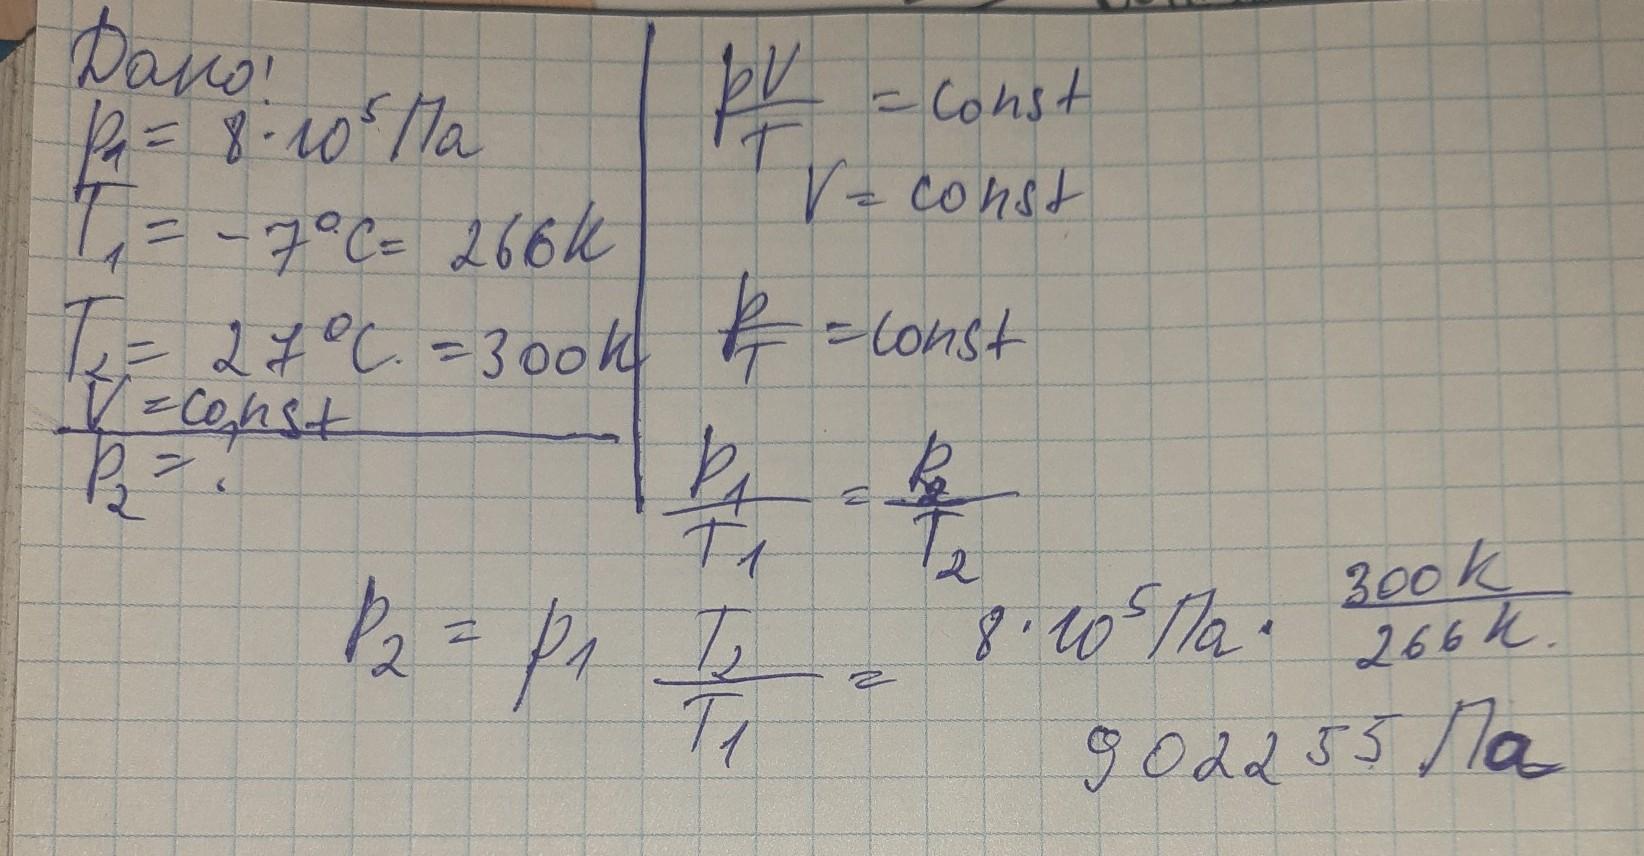 Дано!
p₁ = 8·10⁵ Па
T₁ = -7°C = 266 K
T₂ = 27°C. = 300 K
V = const
P₂ = ?
pV/T = const
V = const
p/T = const
p₁/T₁ = p₂/T₂
P₂ = p₁ T₂/T₁ = 8·10⁵ Па · 300 K/266 K.
902255 Па